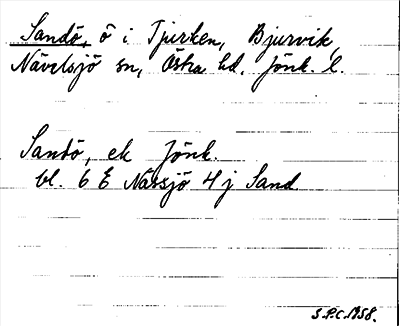 Sandö, ö i Tjurken, Bjurvik,
Nävelsjö sn, Östra hd. Jönk. l.
Sandö, ek Jönk.
bl. 6 E Nässjö 4 j Sand
S.P.C. 1958.